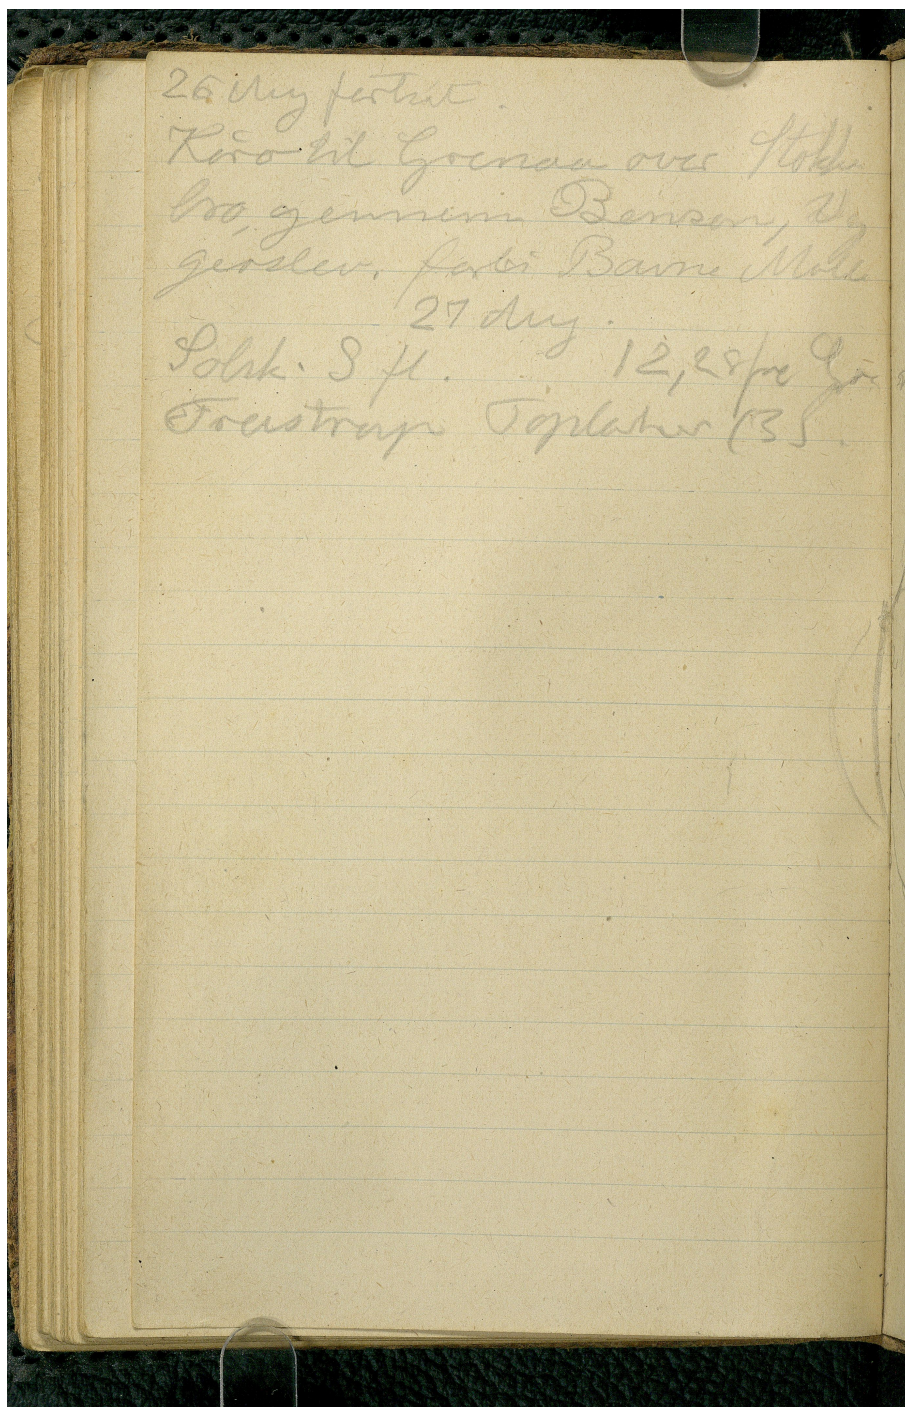 26 Aug fortsat.
Köro til Grenaa over Stokke
bro, gennem Benzon, Ve
gerslev. forbi Bavne Mølle
27 Aug.
Solsk. S fl. 12,28 fre
Treustrup Toplatner (3).